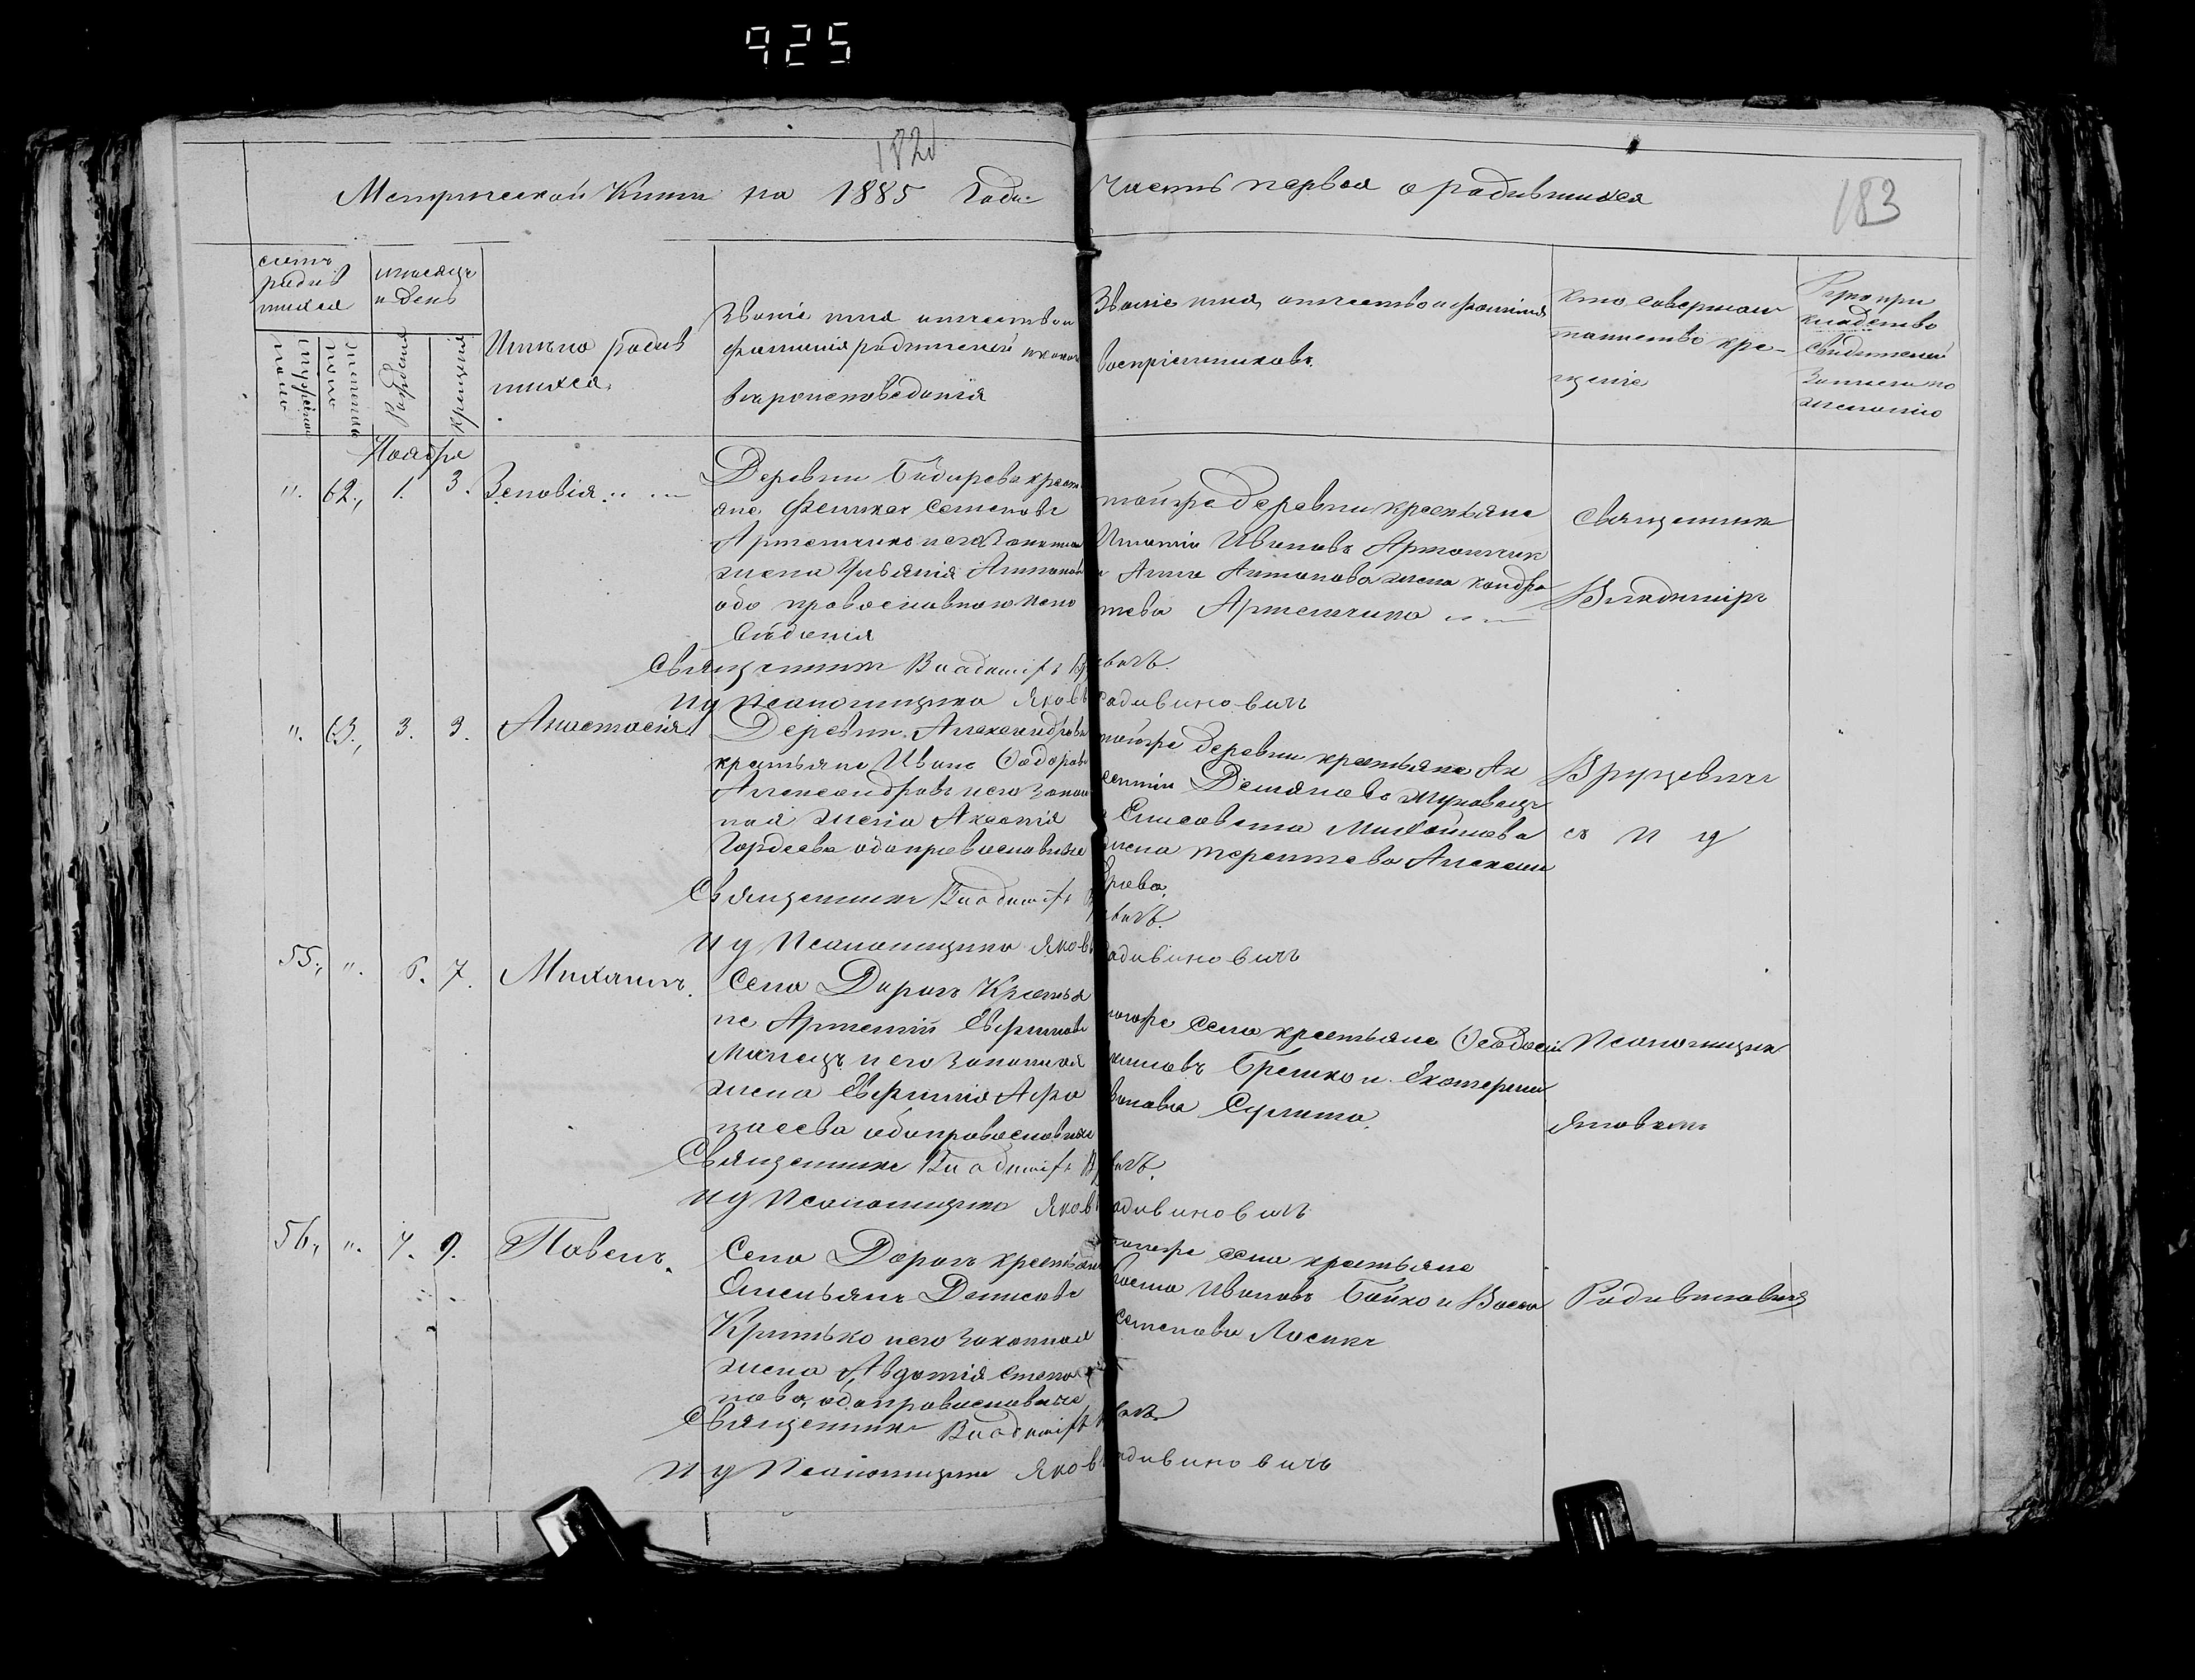 925
182
Метрической Книги на 1885 Года
часть первая о родившихся
183
счетъ
родив
шихся
месяцъ
и день
мужеска
пола
женска
пола
Рождения
крещения
Имена родив
шихся
Званіе имя отчество и
фамилия родителей и какого
вероисповедания
Званіе имя, отчество и фамилия
восприемниковъ.
кто совершал
таинство кре-
щение
Рукопри
кладство
свидетелей
Записи по
желанию
Ноября
". 62., 1. 3. Зеновія
Деревни крестя
яне Семеновъ
и его Законная
жена Ульянія Антонов
оба православного испо
ведания
тойже деревни крестьяне
Игнатій Ивановъ Артемчик
и Анна Антонова жена Кондра
тева Артемчика
Священник
Владимір
Священникъ Владимір
вичъ.
И д Псаломщика Яковъ
Радивиновичъ
". 63., 3. 3. Анастасія
Деревни Александровки
крестьяне Иванъ Фодоровъ
Александровъ и его Закон
ная жена Аксенія
Гордеева оба православные
тойже деревни крестьяне Ав
сентій Демяновъ
и Елисовета Михайлова
жена терентева Алексан
дрова.
Вруцевичъ
съ и д
Священникъ Владимір
вичъ.
И д Псаломщика Яковъ
Радивиновичъ
55., ". 6. 7. Михаилъ.
Села Дорогъ Крестья
не Артемій Евфимовъ
и его Законная
жена Евфимія Афа
насева оба православные
тогоже села крестьяне Феодосій
Брешко и Екатерина
Иванова
Псаломщик
Яковъ
Священникъ Владимір
вичъ.
И д Псаломщика Яковъ
Радивиновичъ
56., ". 7. 9. Павелъ.
Села Дорогъ крестьяне
Емельянъ Денисовъ
Критько и его Законная
жена Авдотія Степа
нова, оба православные
тогоже села крестьяне
Ивановъ Бойко и
Семенова
Радивиновичъ
Священникъ Владимір
вичъ
И д Псаломщика Яковъ
Радивиновичъ